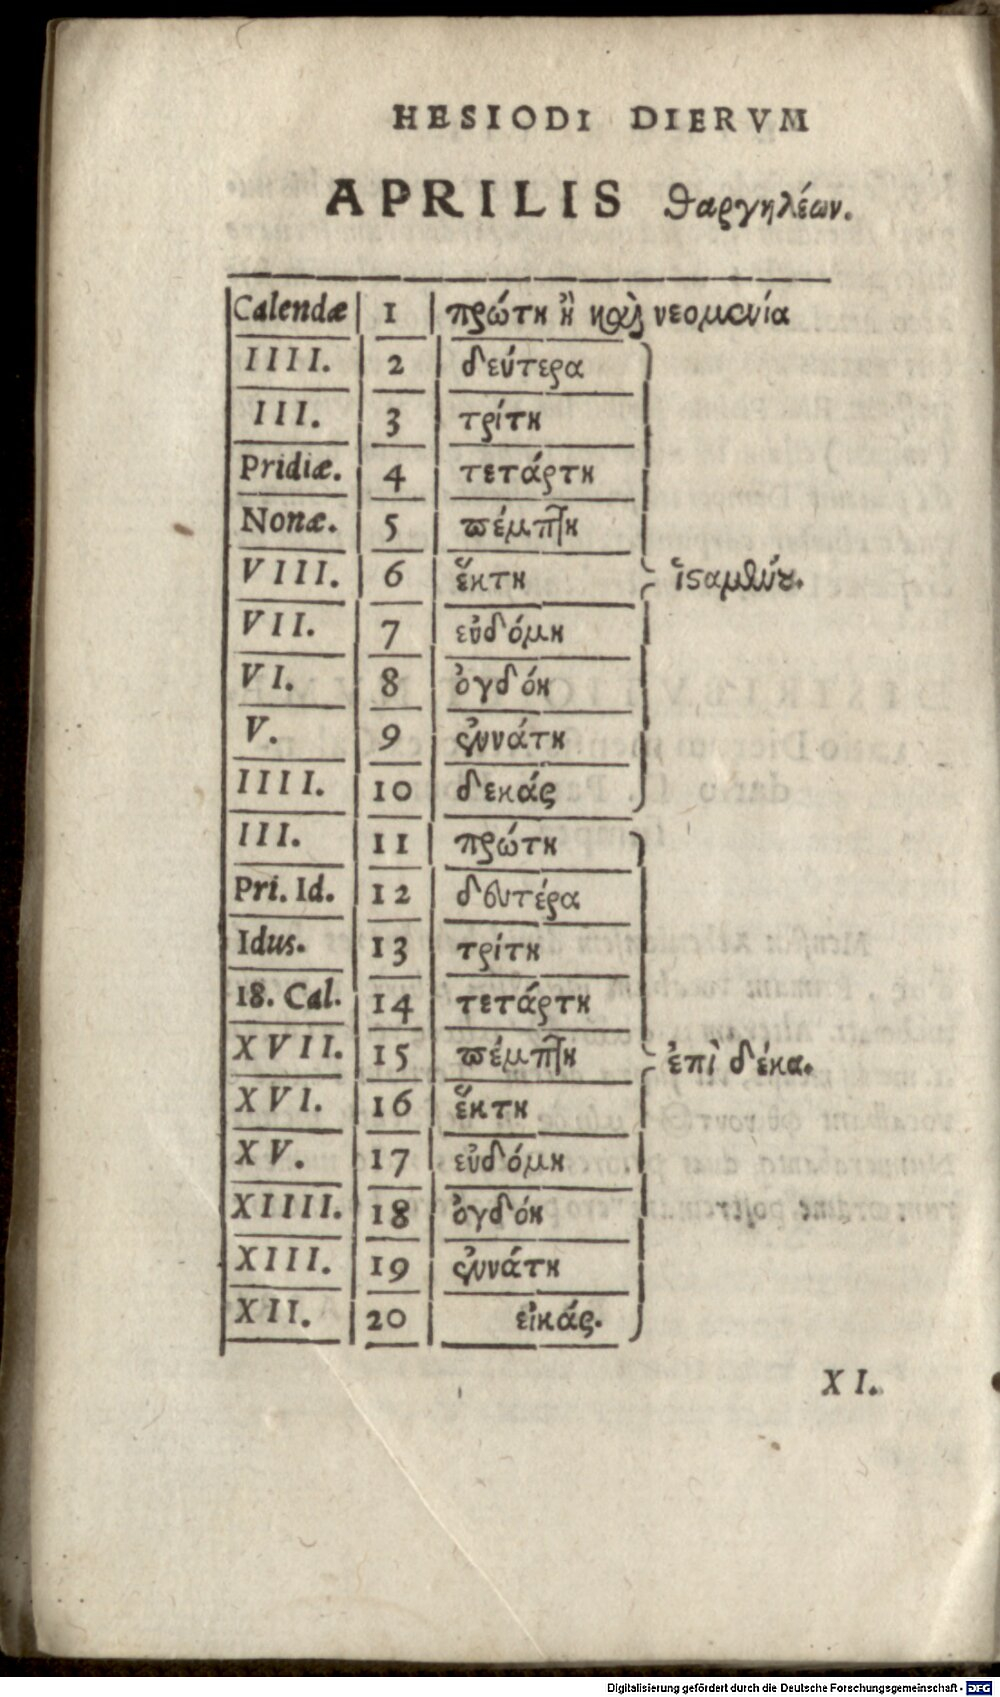 HESIODI DIERVM
APRILIS θαργηλέων.
Calendæ 1 πρώτη ἢ καὶ νεομενία
IIII. 2 δεύτερα
III. 3 τρίτη
Pridiæ. 4 τετάρτη
Nonæ. 5 πέμπτη
VIII. 6 ἕκτη ἱσαμένου.
VII. 7 εὐδόμη
VI. 8 ὀγδόη
V. 9 ἐννάτη
IIII. 10 δεκάς
III. 11 πρώτη
Pri. Id. 12 δευτέρα
Idus. 13 τρίτη
18. Cal. 14 τετάρτη
XVII. 15 πέμπτη ἐπὶ δέκα.
XVI. 16 ἕκτη
XV. 17 εὐδόμη
XIIII. 18 ὀγδόη
XIII. 19 ἐννάτη
XII. 20 εἰκάς.
XI.
Digitalisierung gefördert durch die Deutsche Forschungsgemeinschaft - DFG